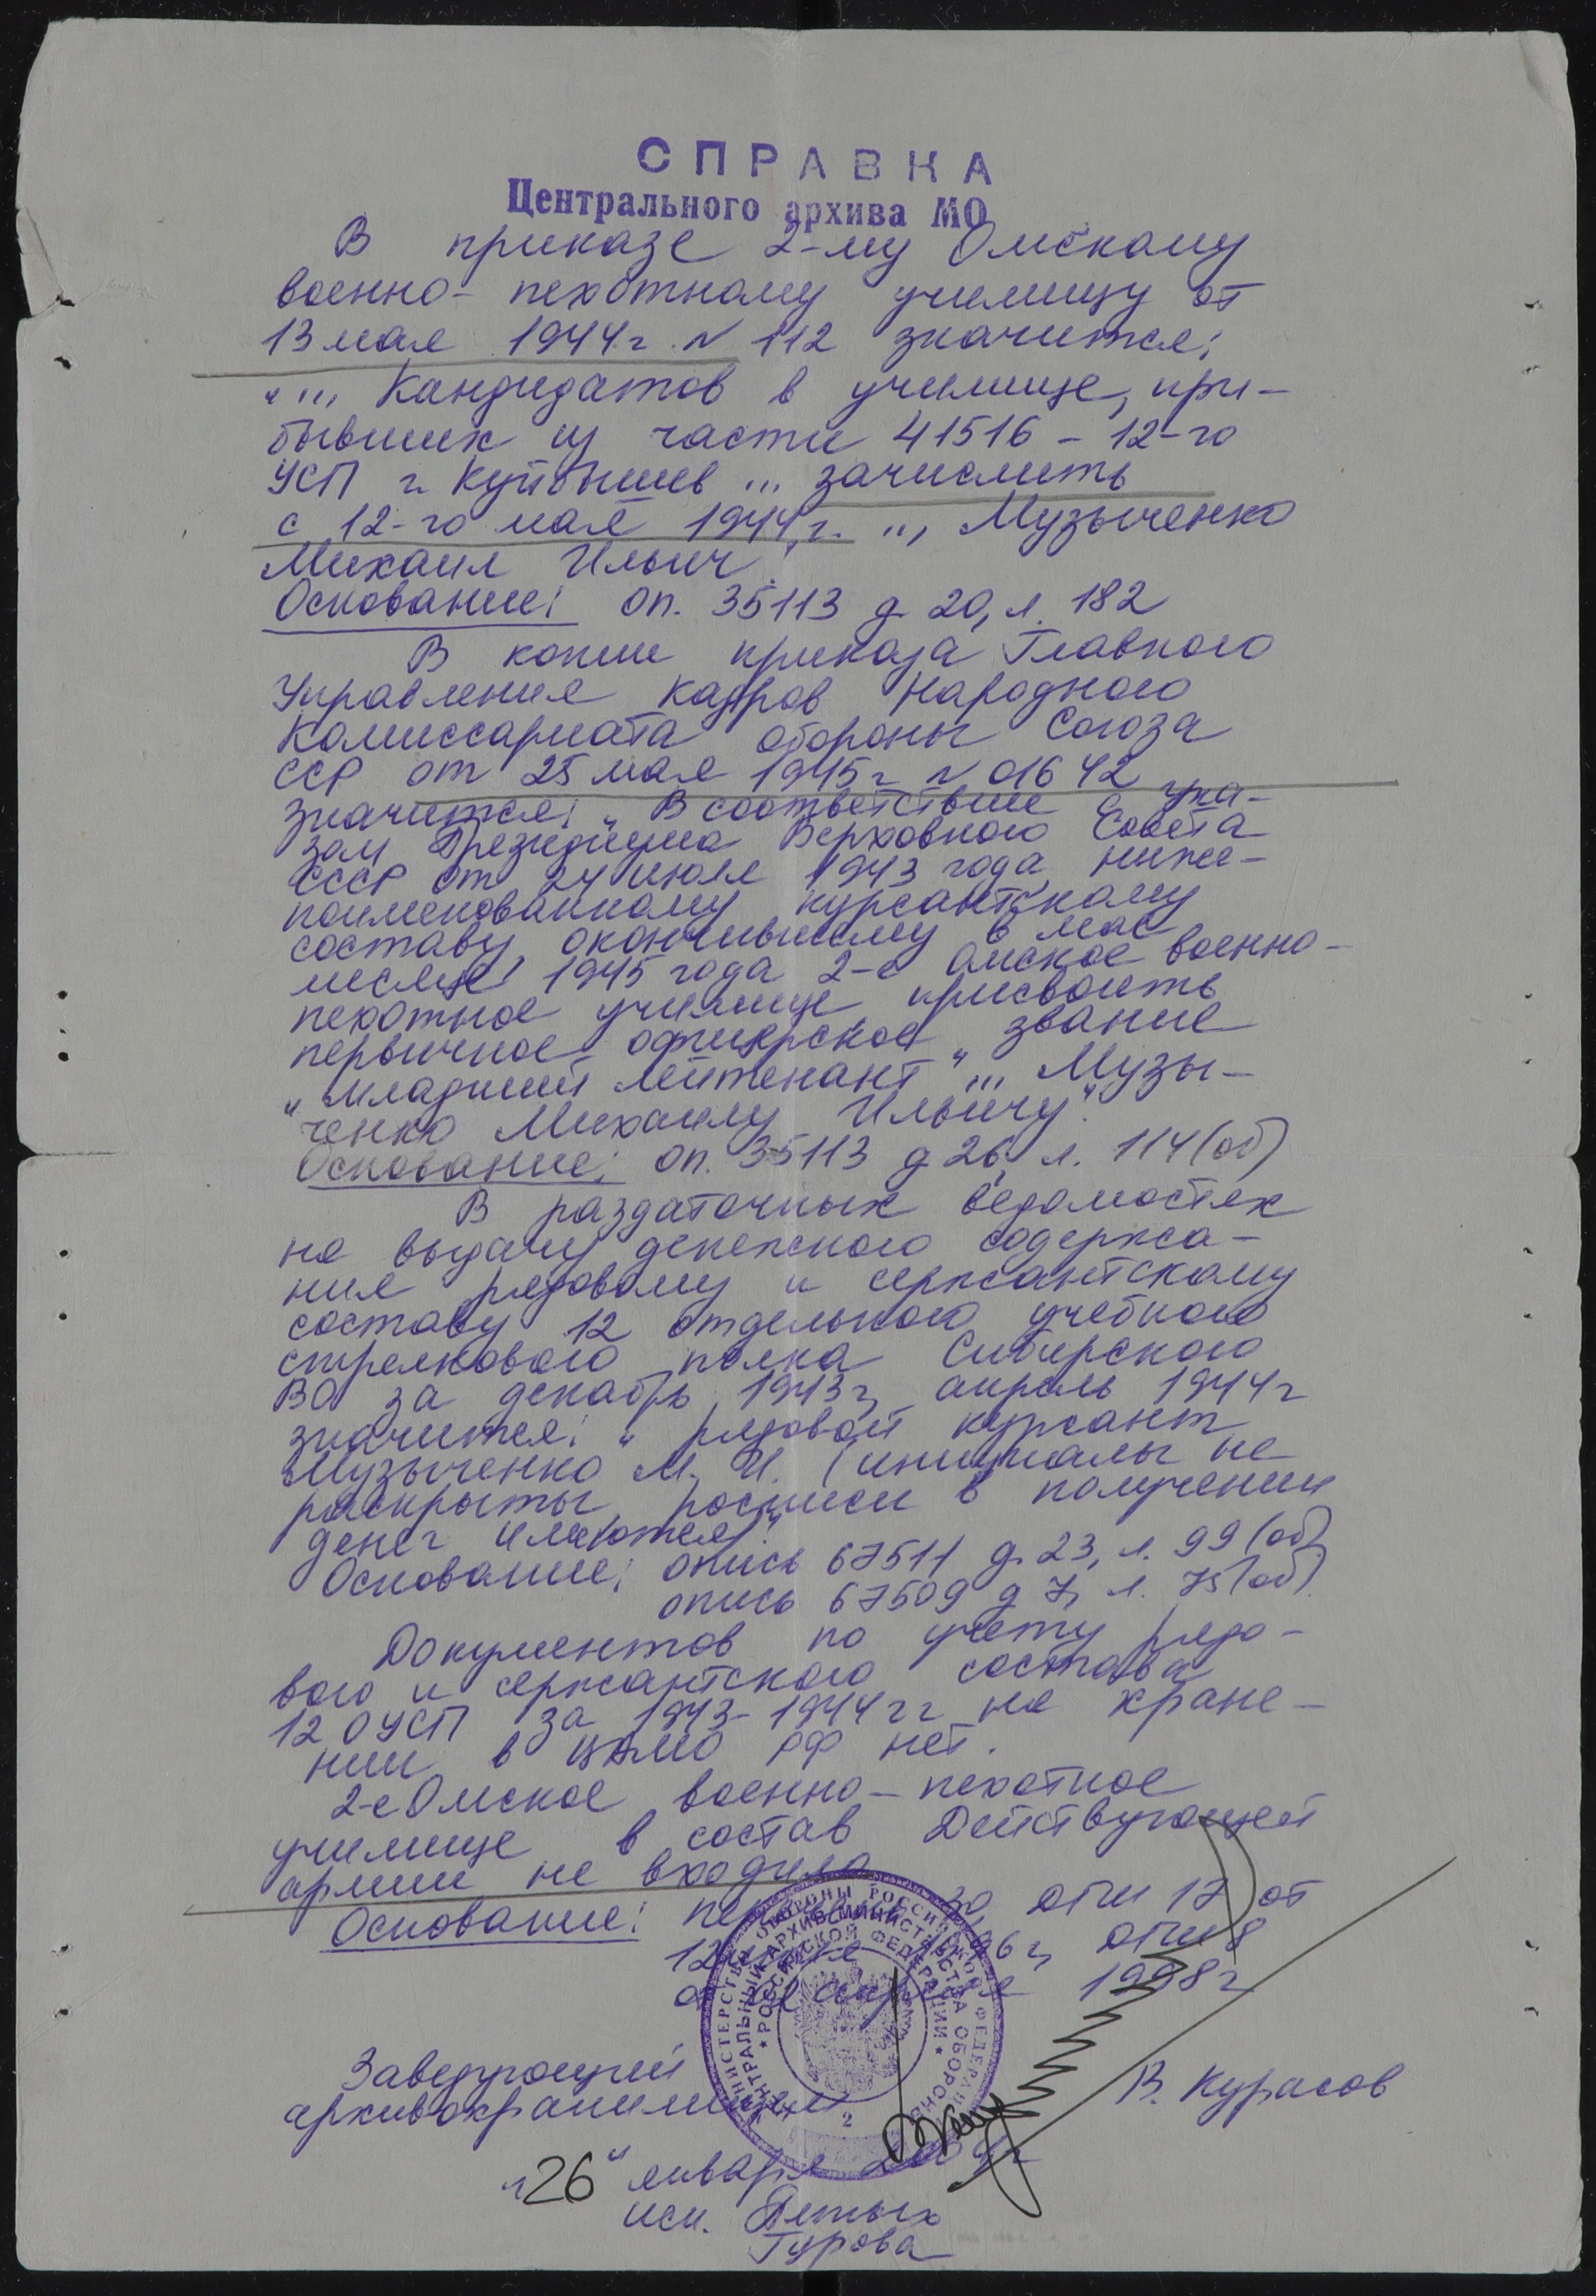 СПРАВКА
Центрального архива МО
В приказе 2-му Омскому
военно-пехотному училищу от
13 мая 1944 г. № 112 значится:
"... Кандидатов в училище, при-
бывших из части 41516 - 12-го
УСП г. Куйбышев ... зачислить
с 12-го мая 1944 г. ... Музыченко
Михаил Ильич".
Основание: оп. 35113 д 20, л. 182
В копии приказа Главного
Управления кадров Народного
Комиссариата обороны Союза
ССР от 25 мая 1945 г № 01642
значится: "В соответствие с ука-
зом Президиума Верховного Совета
СССР от 24 июля 1943 года ниже-
поименованному курсантскому
составу, окончившему в мае
месяце 1945 года 2-е омское военно-
пехотное училище, присвоить
первичное офицерское звание
"младший лейтенант" ... Музы-
ченко Михаилу Ильичу".
Основание: оп. 35113 д 26, л. 114 (об)
В раздаточных ведомостях
на выдачу денежного содержа-
ния рядовому и сержантскому
составу 12 отдельного учебного
стрелкового полка Сибирского
ВО за декабрь 1943 г, апрель 1944 г
значится: "рядовой курсант
Музыченко М. И. (инициалы не
раскрыты, росписи в получении
денег имеются)".
Основание: опись 67511 д. 23, л. 99 (об)
опись 67509 д 7, л. 75 (об).
Документов по учету рядо-
вого и сержантского состава
12 ОУСП за 1943-1944 гг на хране-
нии в ЦАМО РФ нет.
2-е Омское военно-пехотное
училище в состав Действующей
армии не входило
Основание: 30, 17 от
12 8
от 1998 г
МИНИСТЕРСТВО ОБОРОНЫ РОССИЙСКОЙ ФЕДЕРАЦИИ
ЦЕНТРАЛЬНЫЙ АРХИВ МИНИСТЕРСТВА ОБОРОНЫ
* РОССИЙСКОЙ ФЕДЕРАЦИИ *
2
Заведующий
архивохранилищем
В. Курасов
"26" января
исп.
Гурова